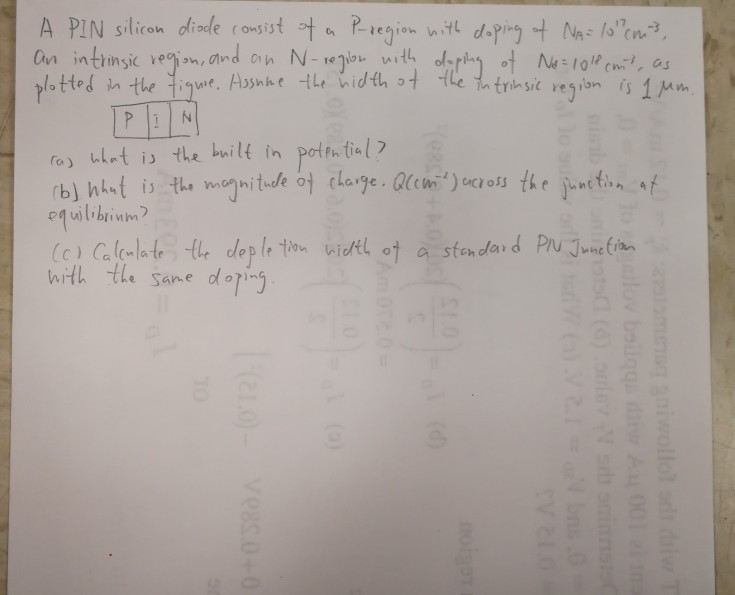 A PIN silicon diode consist of a P-region with doping of NA=10¹⁷cm⁻³,
an intrinsic region, and an N-region with doping of Nd=10¹⁸cm⁻³, as
plotted in the figure. Assume the width of the intrinsic region is 1 μm.
P I N
(a) what is the built in potential?
(b) What is the magnitude of charge. Q(cm⁻²) across the junction at
equilibrium?
(c) Calculate the depletion width of a standard PN Junction
with the same doping.